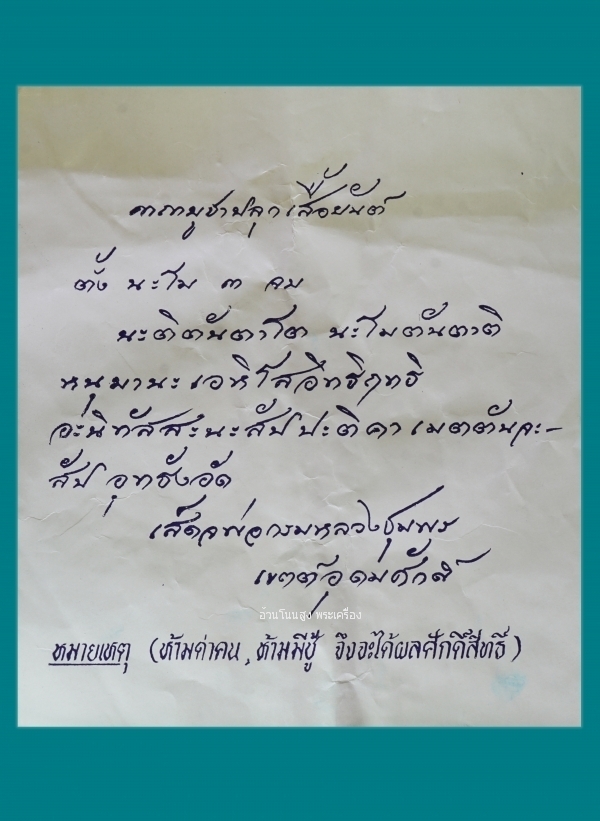 คาถาบูชาปลุกเสื้อยันต์
ตั้ง นะโม ๓ จบ
นะติตันตาโต นะโมตันตาติ
หนุมานะ เอหิโสอิทธิฤทธิ
อะนิทัสสะนะสัปปะติคา เมตตันจะ-
สัป อุทธังอัด
เสด็จพ่อกรมหลวงชุมพร
เขตต์อุดมศักดิ์
อ๋วนโนนสูง พระเครื่อง
หมายเหตุ (ห้ามด่าคน, ห้ามมีชู้ จึงจะได้ผลศักดิ์สิทธิ์)